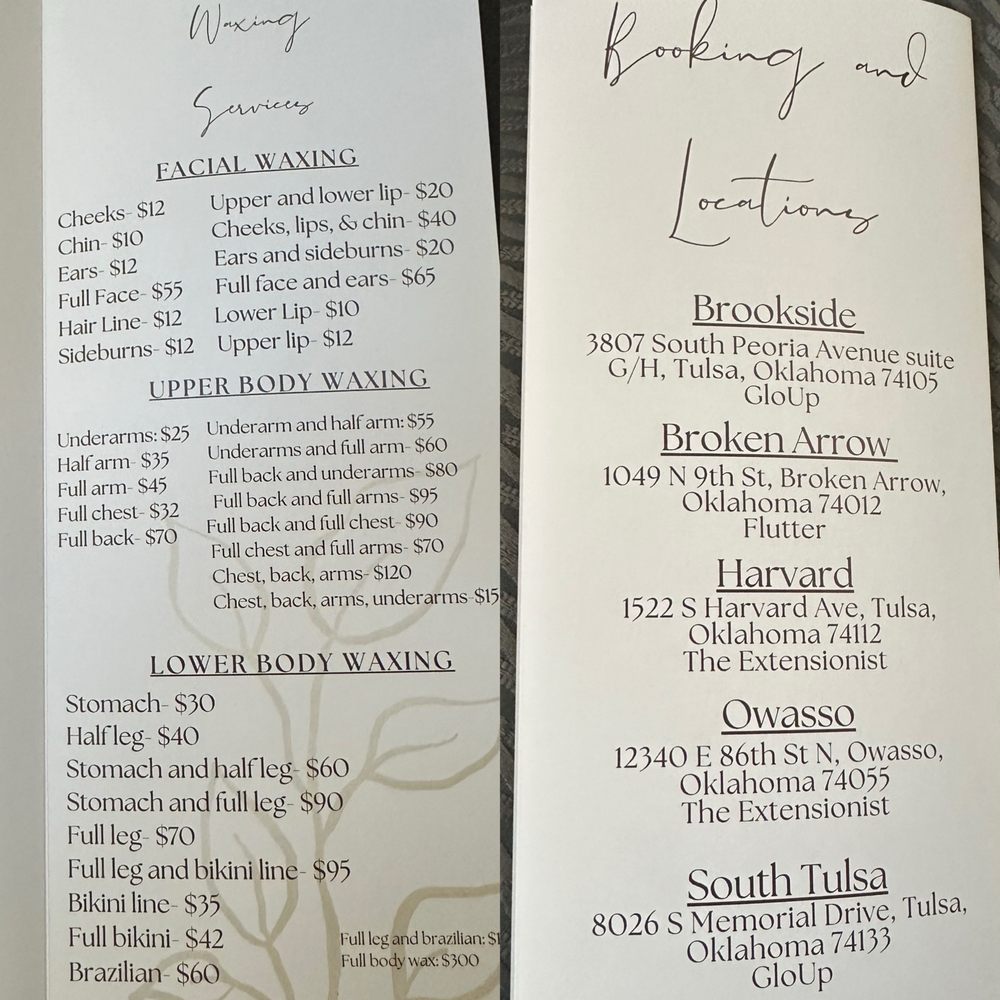 Waxing
Services
FACIAL WAXING
Cheeks- $12
Chin- $10
Ears- $12
Full Face- $55
Hair Line- $12
Sideburns- $12
Upper and lower lip- $20
Cheeks, lips, & chin- $40
Ears and sideburns- $20
Full face and ears- $65
Lower Lip- $10
Upper lip- $12
UPPER BODY WAXING
Underarms: $25
Half arm- $35
Full arm- $45
Full chest- $32
Full back- $70
Underarm and half arm: $55
Underarms and full arm- $60
Full back and underarms- $80
Full back and full arms- $95
Full back and full chest- $90
Full chest and full arms- $70
Chest, back, arms- $120
Chest, back, arms, underarms-$15
LOWER BODY WAXING
Stomach- $30
Half leg- $40
Stomach and half leg- $60
Stomach and full leg- $90
Full leg- $70
Full leg and bikini line- $95
Bikini line- $35
Full bikini- $42
Brazilian- $60
Full leg and brazilian: $1
Full body wax: $300
Booking and
Locations
Brookside
3807 South Peoria Avenue suite
G/H, Tulsa, Oklahoma 74105
GloUp
Broken Arrow
1049 N 9th St, Broken Arrow,
Oklahoma 74012
Flutter
Harvard
1522 S Harvard Ave, Tulsa,
Oklahoma 74112
The Extensionist
Owasso
12340 E 86th St N, Owasso,
Oklahoma 74055
The Extensionist
South Tulsa
8026 S Memorial Drive, Tulsa,
Oklahoma 74133
GloUp